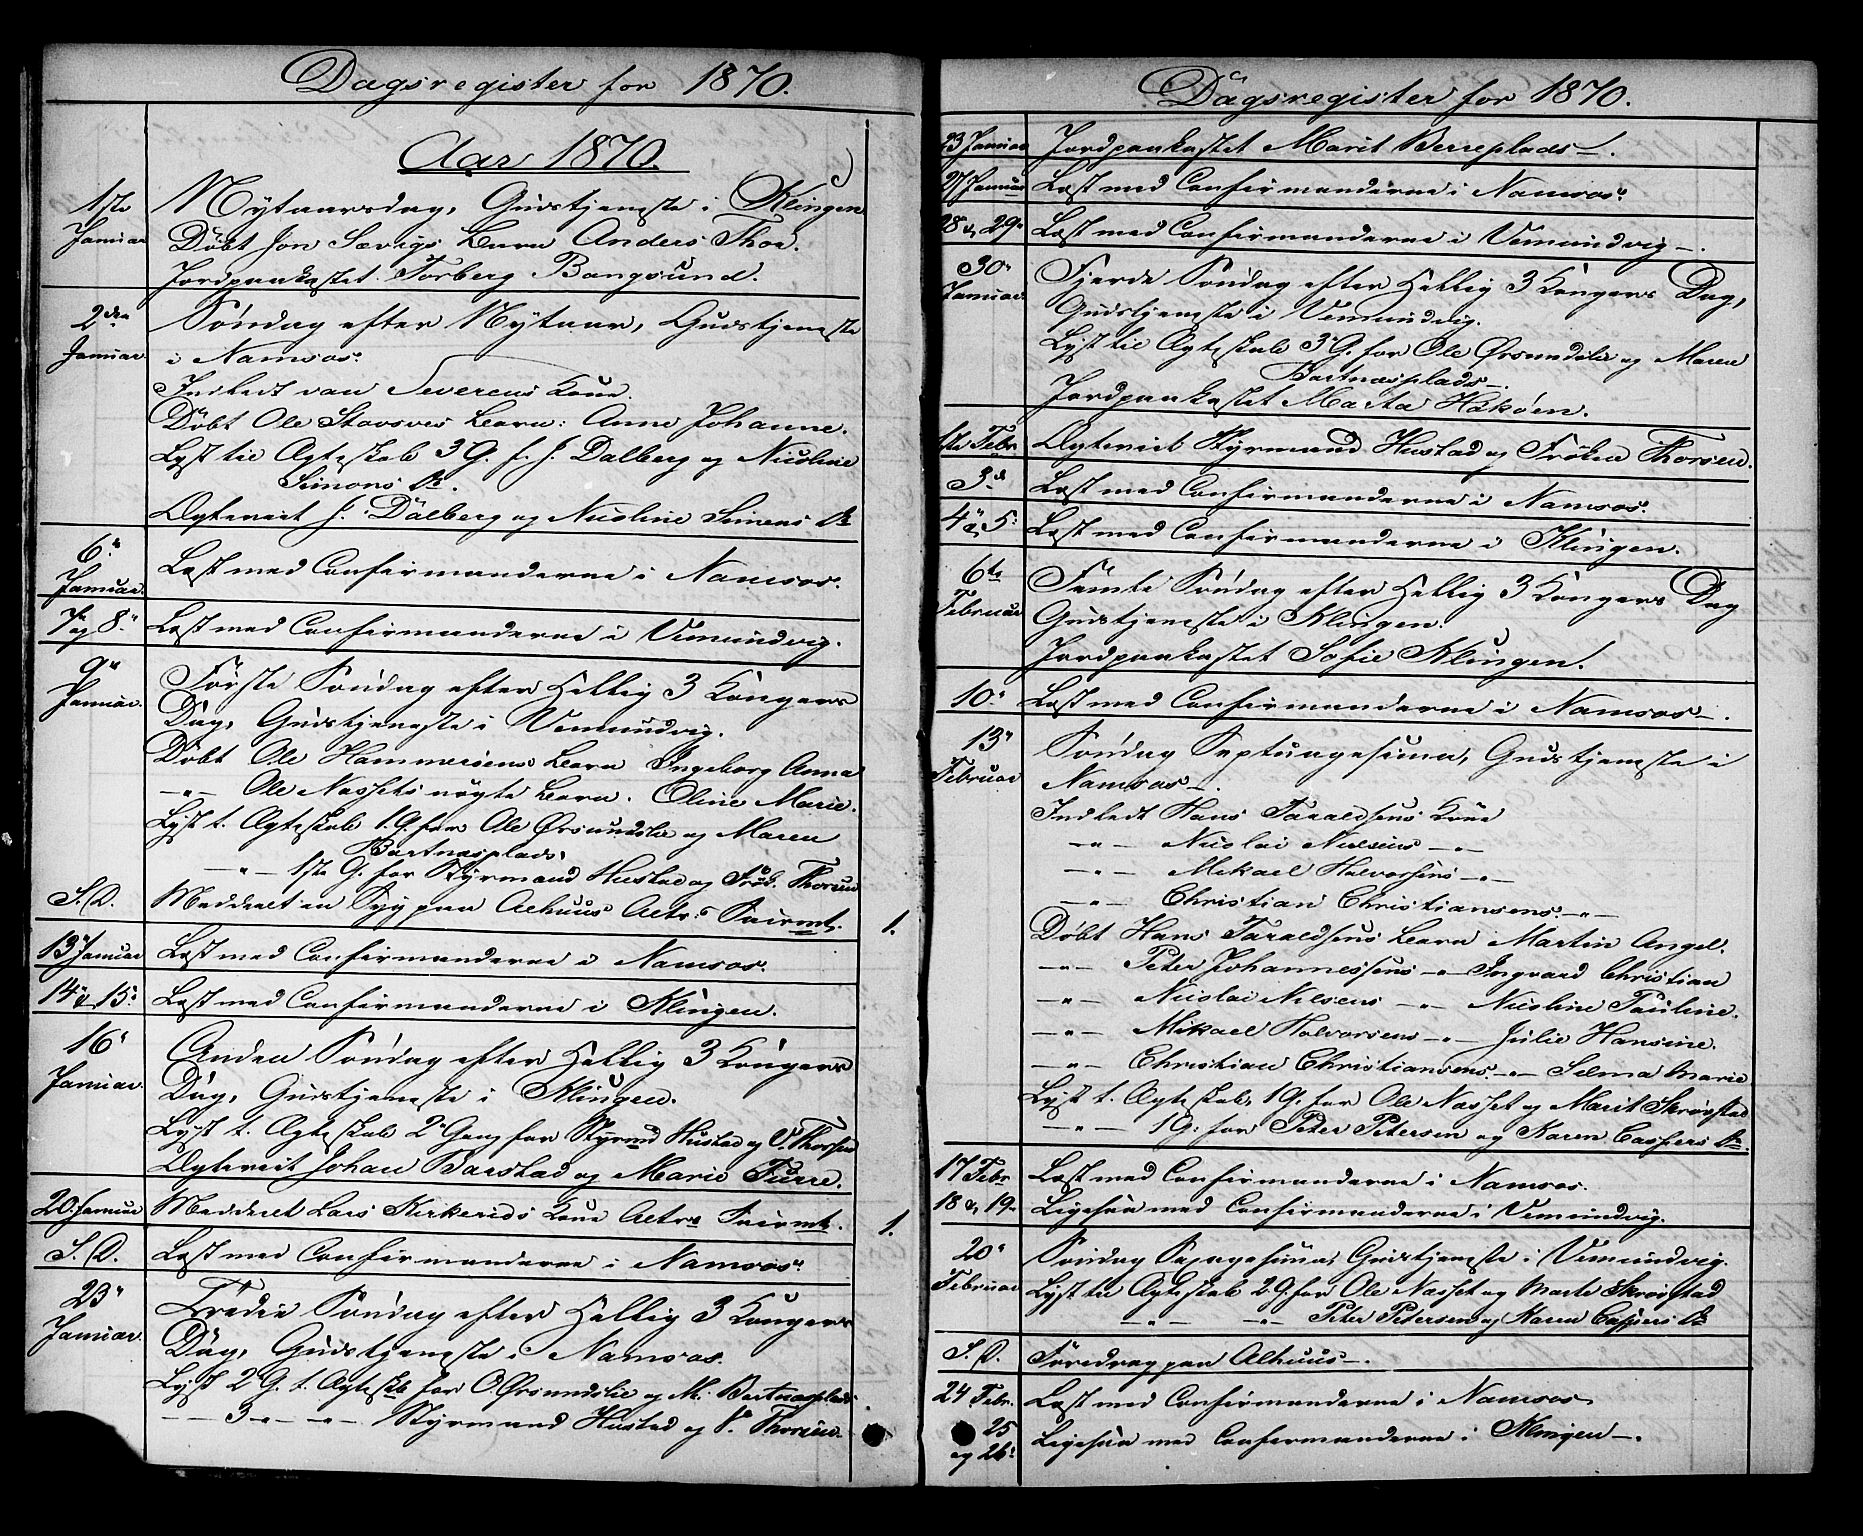 Dagsregister for 1870.
Aar 1870.
1ste Januar
Nytaarsdag, Gudstjeneste i Klingen
Döbt Jon Sævigs Barn Anders Thoe.
Jordpaakastet: Torberg Bangsund.
2den Januar
Söndag efter Nytaar, Gudstjeneste
i Namsos.
Indledt van Severens Kone.
Döbt Ole Staosves Barn: Anne Johanne.
Lyst til Ægteskab 3 G. f. J. Dalberg og Nicoline
Simons Dr.
Ægteviet J. Dalberg og Nicoline Simons Dr
6. Januar.
Læst med Confirmanderne i Namsos.
7 og 8.
Læst med Confirmanderne i Vemundvig.
9 Januar.
Förste Söndag efter Hellig 3 Kongers
Dag, Gudstjeneste i Vemundvig.
Döbt Ole Hammersens Barn Ingeborg Anna
—„— Ole Nassets uægte Barn. Oline Marie.
Lyst t. Ægteskab 1. G. for Ole Örsundslie og Maren
Bartnesplads.
—„— 1ste G. for Styrmand Hustad og Frök. Thorsen
S. D.
Meddeelt en Syg paa Aelhuus Altr.s Sacrmt.
1.
13 Januar
Læst med Confirmanderne i Namsos.
14 & 15.
Læst med Confirmanderne i Klingen.
16 Januar.
Anden Söndag efter Hellig 3 Kongers
Dag, Gudstjeneste i Klingen.
Lyst t. Ægteskab 2 Gang for Styrmd Hustad og V. Thorsen
Ægteviet Johan Barstad og Marie Furre.
20. Januar
Meddelet Lars Kirkerids Kone Altrs Sacrmt.
1.
S. D.
Læst med Confirmanderne i Namsos.
23 Januar.
Tredie Söndag efter Hellig 3 Kongers
Dag, Gudstjeneste i Namsos.
Lyst 2 G. t. Ægteskb for O. Örsundslie og M. Bartnesplads
— — 3 — „ — „ — Styrmand Hustad og Fr. Thorsen.
Dagsregister for 1870.
23 Januar
Jordpaakastet Marit Berreplads —.
27 Januar
Læst med Confirmanderne i Namsos.
28 & 29.
Læst med Confirmanderne i Vemundvig —.
30 Januar.
Fjerde Söndag efter Hellig 3 Kongers Dag,
Gudstjeneste i Vemundvig.
Lyst til Ægteskab 3 G. for Ole Örsundslie og Maren
Bartnesplads —.
Jordpaakastet Marta Haköen.
1ste Febr.
Ægteviet Styrmand Hustad og Fröken Thorsen.
3.
Læst med Confirmanderne i Namsos.
4 & 5.
Læst med Confirmanderne i Klingen.
6te Februar
Femte Söndag efter Hellig 3 Kongers Dag
Gudstjeneste i Klingen.
Jordpaakastet Sofie Klingen.
10.
Læst med Confirmanderne i Namsos —.
13 Februar
Söndag Septuagesima, Gudstjeneste i
Namsos —.
Indledt Hans Taraldsens Kone
—„— Nicolai Nielsens —„—
—„— Mikael Halvorsens —„—
—„— Christian Christiansens. —„—
Döbt Hans Taraldsens Barn Martin Angel.
—„— Peter Johannessens —„— Ingvard Christian
—„— Nicolai Nilsens —„— Nicoline Pauline.
—„— Mikael Halvorsens —„— Julie Hansine.
—„— Christian Christiansens. —„— Selma Marie
Lyst t. Ægteskab, 1 G. for Ole Nasset og Marit Skrövstad
—„— 1 G. for Peter Petersen og Karen Caspers Dr.
17 Febr
Læst med Confirmanderne i Namsos.
18 & 19.
Ligesaa med Confirmanderne i Vemundvig.
20 Februar
Söndag Sexagesima, Gudstjeneste i Vemundvig.
Lyst til Ægteskab 2 G. for Ole Nasset og Marte Skrövstad
—„— —„— Peter Petersen og Karen Caspers Dr
S. D.
Foredrag paa Aelhuus —.
24 Febr.
Læst med Confirmanderne i Namsos
25 og 26.
Ligesaa med Confirmanderne i Klingen —.